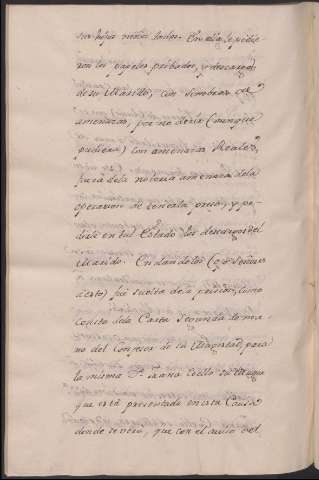 sus hijos niños todos. En ella le pidie-
ron los papeles probados, y descargos
de su Marido, con sombras de
amenazas, por no decir (aunque
pudiera) con amenazas Reales,
fuera de la notoria amenaza de la
operacion de tenerla presa, y pe-
dirle en tal Estado los descargos del
Marido. En dandolos (que
esto) fue suelta de la prision, como
consta de la Carta segunda de ma-
no del Confesor de su Magestad, para
la misma D.ª Juana Coello su
que está presentada en esta Causa
donde se verá, que con el auiso del